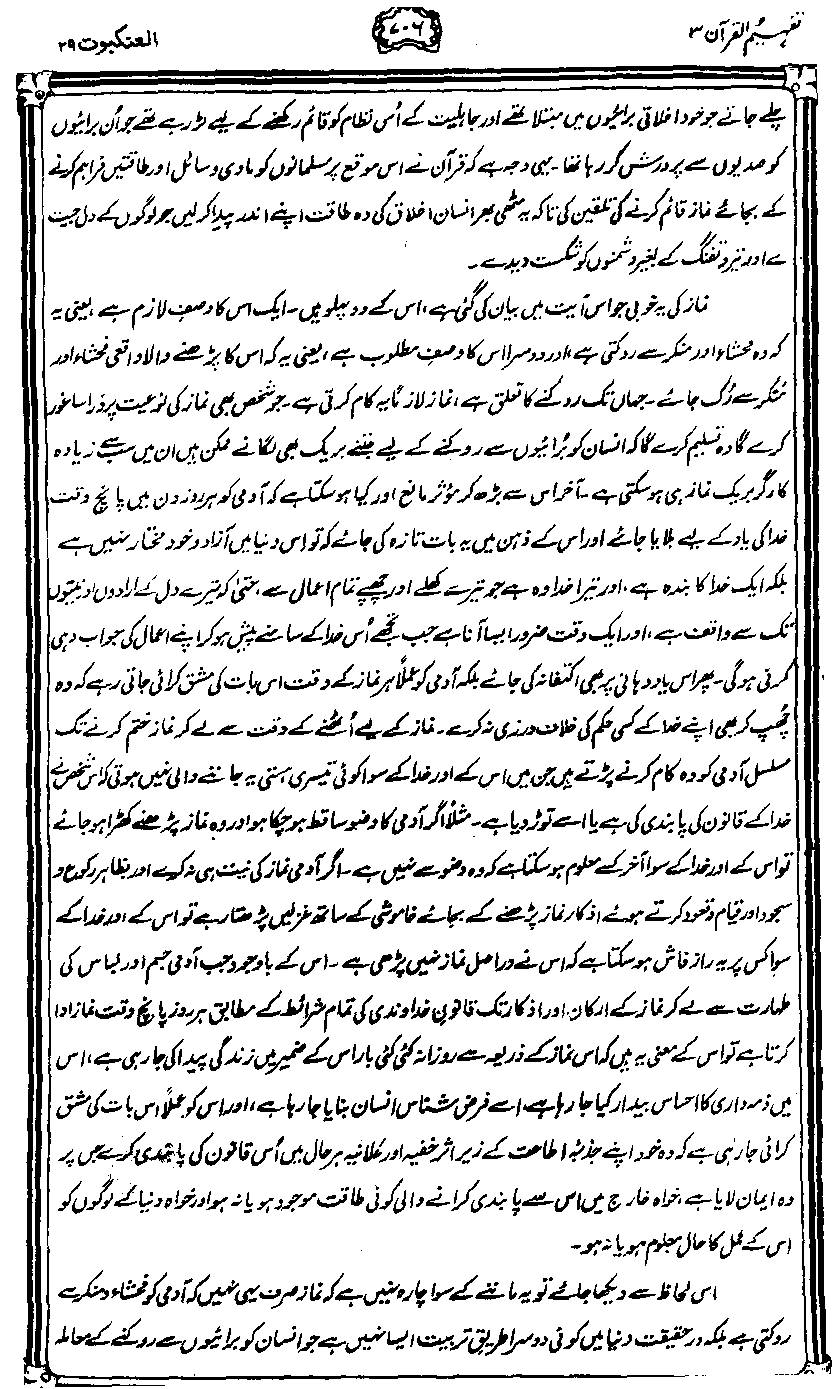 تفہیم القرآن ۳
۷۰۶
العنکبوت ۲۹
چلے جاتے جو خود اخلاقی برائیوں میں مبتلا تھے اور جاہلیت کے اُس نظام کو قائم رکھنے کے لیے لڑ رہے تھے جو اُن برائیوں
کو صدیوں سے پرورش کر رہا تھا۔ یہی وجہ ہے کہ قرآن نے اس موقع پر مسلمانوں کو مادی وسائل اور طاقتیں فراہم کرنے
کے بجائے نماز قائم کرنے کی تلقین کی تاکہ یہ مٹھی بھر انسان اخلاق کی وہ طاقت اپنے اندر پیدا کر لیں جو لوگوں کے دل جیت
لے اور تیر و تفنگ کے بغیر دشمنوں کو شکست دیدے۔
نماز کی یہ خوبی جو اس آیت میں بیان کی گئی ہے، اس کے دو پہلو ہیں۔ ایک اس کا وصفِ لازم ہے، یعنی یہ
کہ وہ فحشاء اور منکر سے روکتی ہے، اور دوسرا اس کا وصفِ مطلوب ہے، یعنی یہ کہ اس کا پڑھنے والا واقعی فحشاء اور
مُنکر سے رُک جائے۔ جہاں تک روکنے کا تعلق ہے، نماز لازمًا یہ کام کرتی ہے۔ جو شخص بھی نماز کی نوعیت پر ذرا سا غور
کرے گا وہ تسلیم کرے گا کہ انسان کو بُرائیوں سے روکنے کے لیے جتنے بریک بھی لگانے ممکن ہیں ان میں سب سے زیادہ
کارگر بریک نماز ہی ہو سکتی ہے۔ آخر اس سے بڑھ کر مؤثر مانع اور کیا ہو سکتا ہے کہ آدمی کو ہر روز دن میں پانچ وقت
خدا کی یاد کے لیے بلایا جائے اور اس کے ذہن میں یہ بات تازہ کی جائے کہ تو اس دنیا میں آزاد و خود مختار نہیں ہے
بلکہ ایک خدا کا بندہ ہے، اور تیرا خدا وہ ہے جو تیرے کھلے اور چھپے تمام اعمال سے، حتیٰ کہ تیرے دل کے ارادوں اور نیتوں
تک سے واقف ہے، اور ایک وقت ضرور ایسا آنا ہے جب تجھے اُس خدا کے سامنے پیش ہو کر اپنے اعمال کی جواب دہی
کرنی ہوگی۔ پھر اس یاد دہانی پر بھی اکتفا نہ کی جائے بلکہ آدمی کو عملًا ہر نماز کے وقت اس بات کی مشق کرائی جاتی رہے کہ وہ
چُھپ کر بھی اپنے خدا کے کسی حکم کی خلاف ورزی نہ کرے۔ نماز کے لیے اُٹھنے کے وقت سے لے کر نماز ختم کرنے تک
مسلسل آدمی کو وہ کام کرنے پڑتے ہیں جن میں اس کے اور خدا کے سوا کوئی تیسری ہستی یہ جاننے والی نہیں ہوتی کہ اس شخص نے
خدا کے قانون کی پابندی کی ہے یا اسے توڑ دیا ہے۔ مثلًا اگر آدمی کا وضو ساقط ہو چکا ہو اور وہ نماز پڑھنے کھڑا ہو جائے
تو اس کے اور خدا کے سوا آخر کسے معلوم ہو سکتا ہے کہ وہ وضو سے نہیں ہے۔ اگر آدمی نماز کی نیت ہی نہ کرے اور بظاہر رکوع و
سجود اور قیام و قعود کرتے ہوئے اذکارِ نماز پڑھنے کے بجائے خاموشی کے ساتھ غزلیں پڑھتا رہے تو اس کے اور خدا کے
سوا کس پر یہ راز فاش ہو سکتا ہے کہ اس نے دراصل نماز نہیں پڑھی ہے۔ اس کے باوجود جب آدمی جسم اور لباس کی
طہارت سے لے کر نماز کے ارکان اور اذکار تک قانونِ خداوندی کی تمام شرائط کے مطابق ہر روز پانچ وقت نماز ادا
کرتا ہے تو اس کے معنی یہ ہیں کہ اس نماز کے ذریعہ سے روزانہ کئی کئی بار اس کے ضمیر میں زندگی پیدا کی جا رہی ہے، اس
میں ذمہ داری کا احساس بیدار کیا جا رہا ہے، اسے فرض شناس انسان بنایا جا رہا ہے، اور اس کو عملًا اس بات کی مشق
کرائی جا رہی ہے کہ وہ خود اپنے جذبۂ اطاعت کے زیر اثر خفیہ اور علانیہ ہر حال میں اُس قانون کی پابندی کرے جس پر
وہ ایمان لایا ہے، خواہ خارج میں اس سے پابندی کرانے والی کوئی طاقت موجود ہو یا نہ ہو اور خواہ دنیا کے لوگوں کو
اس کے عمل کا حال معلوم ہو یا نہ ہو۔
اس لحاظ سے دیکھا جائے تو یہ ماننے کے سوا چارہ نہیں ہے کہ نماز صرف یہی نہیں کہ آدمی کو فحشاء و منکر سے
روکتی ہے بلکہ درحقیقت دنیا میں کوئی دوسرا طریقِ تربیت ایسا نہیں ہے جو انسان کو برائیوں سے روکنے کے معاملہ